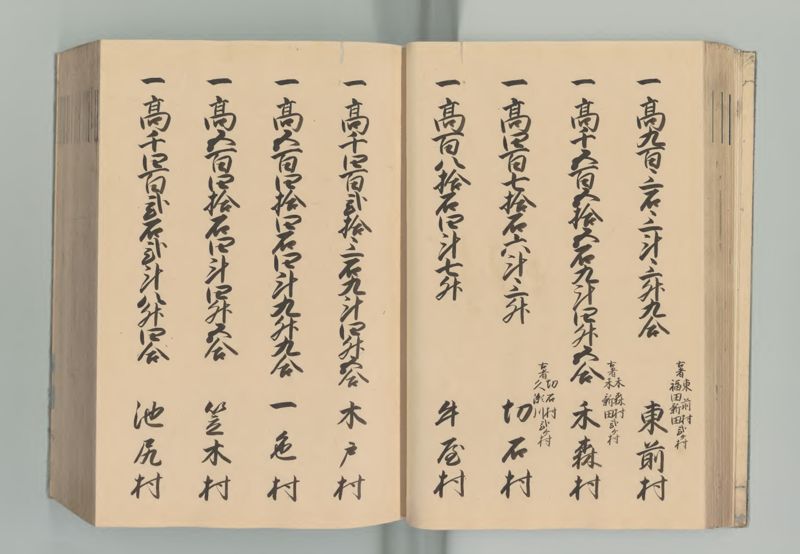 一高九百三石三斗三升九合
古者東前村
福田新田弐ケ村
東前村
一高千五百五拾五石九斗四升五合
古者木森村
禾新田弐ケ村
禾森村
一高四百七拾石六斗三升
古者切石村
久瀬川弐ケ村
切石村
一高百八拾石四斗七升
牛屋村
一高千四百弐拾三石九斗四升六合
木戸村
一高五百四拾四石四斗九升九合
一色村
一高五百四拾石四斗四升五合
笠木村
一高千四百弐石弐斗八升四合
池尻村